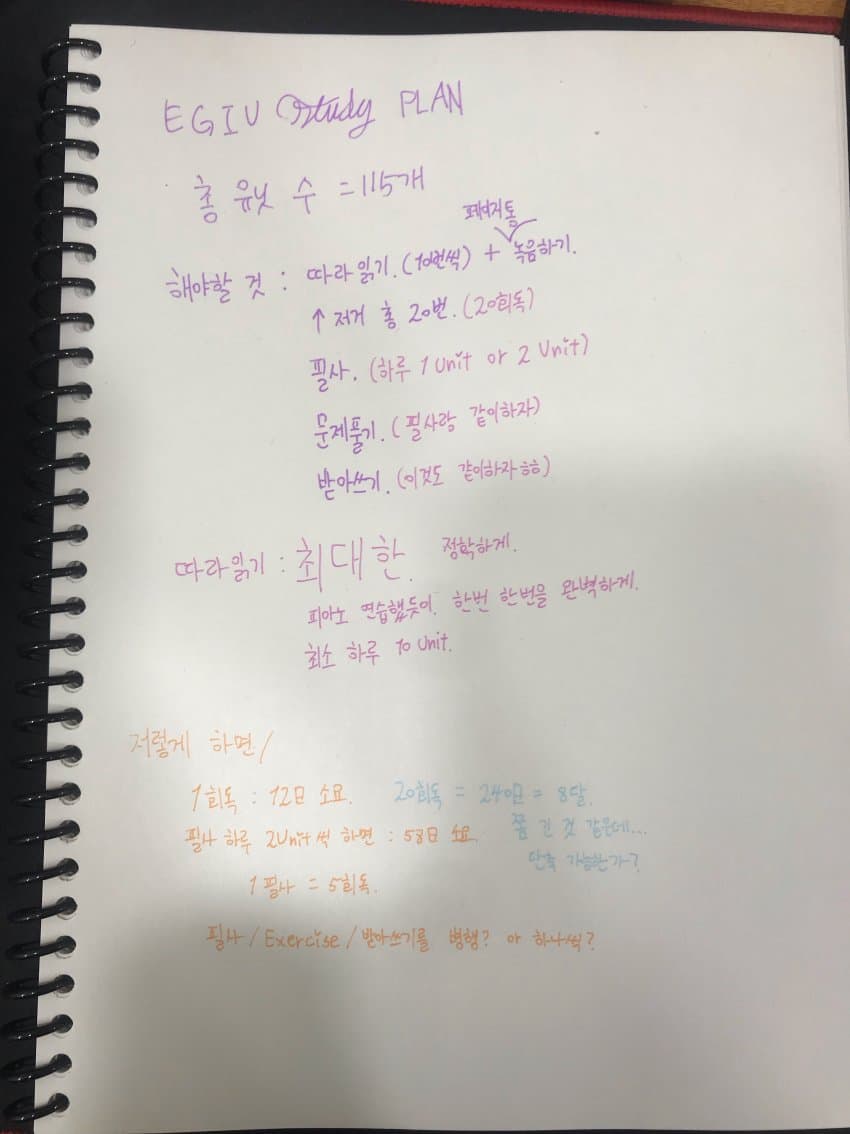 EGIU Study PLAN
총 유닛 수 = 115개
페이지 통
해야할 것 : 따라 읽기. (10번씩) + 녹음하기.
↑ 저거 총 20번. (20회독)
필사. (하루 1 Unit or 2 Unit)
문제풀기. (필사랑 같이하자)
받아쓰기. (이것도 같이하자 ㅎㅎ)
따라 읽기 : 최대한. 정확하게.
피아노 연습했듯이. 한번 한번을 완벽하게.
최소 하루 10 Unit.
저렇게 하면/
1회독 : 12日 소요. 20회독 = 240日 = 8달.
필사 하루 2Unit씩 하면 : 58日 소요. 쫌 긴 것 같은데...
단축 가능한가?
1필사 = 5회독.
필사/Exercise/받아쓰기를 병행? 아 하나씩?